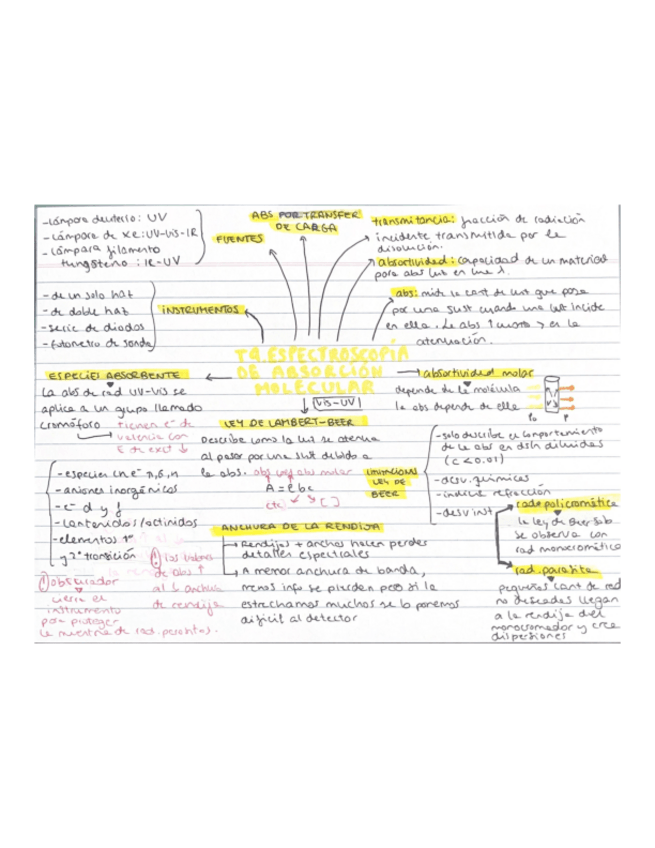 -lámpara deuterio: UV
-lámpara de xe: UV-Vis-IR
-lámpara filamento
tungsteno: IR-UV
FUENTES
ABS POR TRANSFER
DE CARGA
transmitancia: fracción de radiación
incidente transmitida por la
disolución.
absortividad: capacidad de un material
para abs luz en una λ.
abs: mide la cant de luz que pasa
por una sust cuando una luz incide
en ella. La abs ↑ cuanto > es la
atenuación.
-de un solo haz
-de doble haz
-serie de diodos
-fotómetro de sonda
INSTRUMENTOS
T4. ESPECTROSCOPÍA
DE ABSORCIÓN
MOLECULAR
VIS-UV
ESPECIES ABSORBENTE
La abs de rad UV-Vis se
aplica a un grupo llamado
cromóforo
tienen e⁻ de
valencia con
E de excit ↓
absortividad molar
depende de la molécula
la abs depende de ella
P₀ P
LEY DE LAMBERT-BEER
Describe como la luz se atenua
al pasar por una sust debido a
la abs.
abs molar
A = εbc
cte [ ]
LIMITACIONES
LEY DE
BEER
-solo describe el comportamiento
de la abs en dsln diluidas
(c<0.01)
-desv. químicas
-indice refracción
-desv inst
-especies en e⁻ π, σ, n
-aniones inorgánicos
-e⁻ d y f
-lantánidos/actínidos
-elementos 1ª
y 2ª transición
ANCHURA DE LA RENDIJA
Rendijas + anchas hacen perder
detalles espectrales
A menor anchura de banda,
menos info se pierden pero si la
estrechamos muchos se lo ponemos
dificil al detector
(!) los valores
de abs ↑
al ↓ anchura
de rendija
(!) obturador
cierra el
instrumento
para proteger
la muestra de rad. parasitas.
rad. policromática
la ley de Beer solo
se observa con
rad monocromática
rad. parasita
pequeñas cant de rad
no deseadas llegan
a la rendija del
monocromador y crea
dispersiones